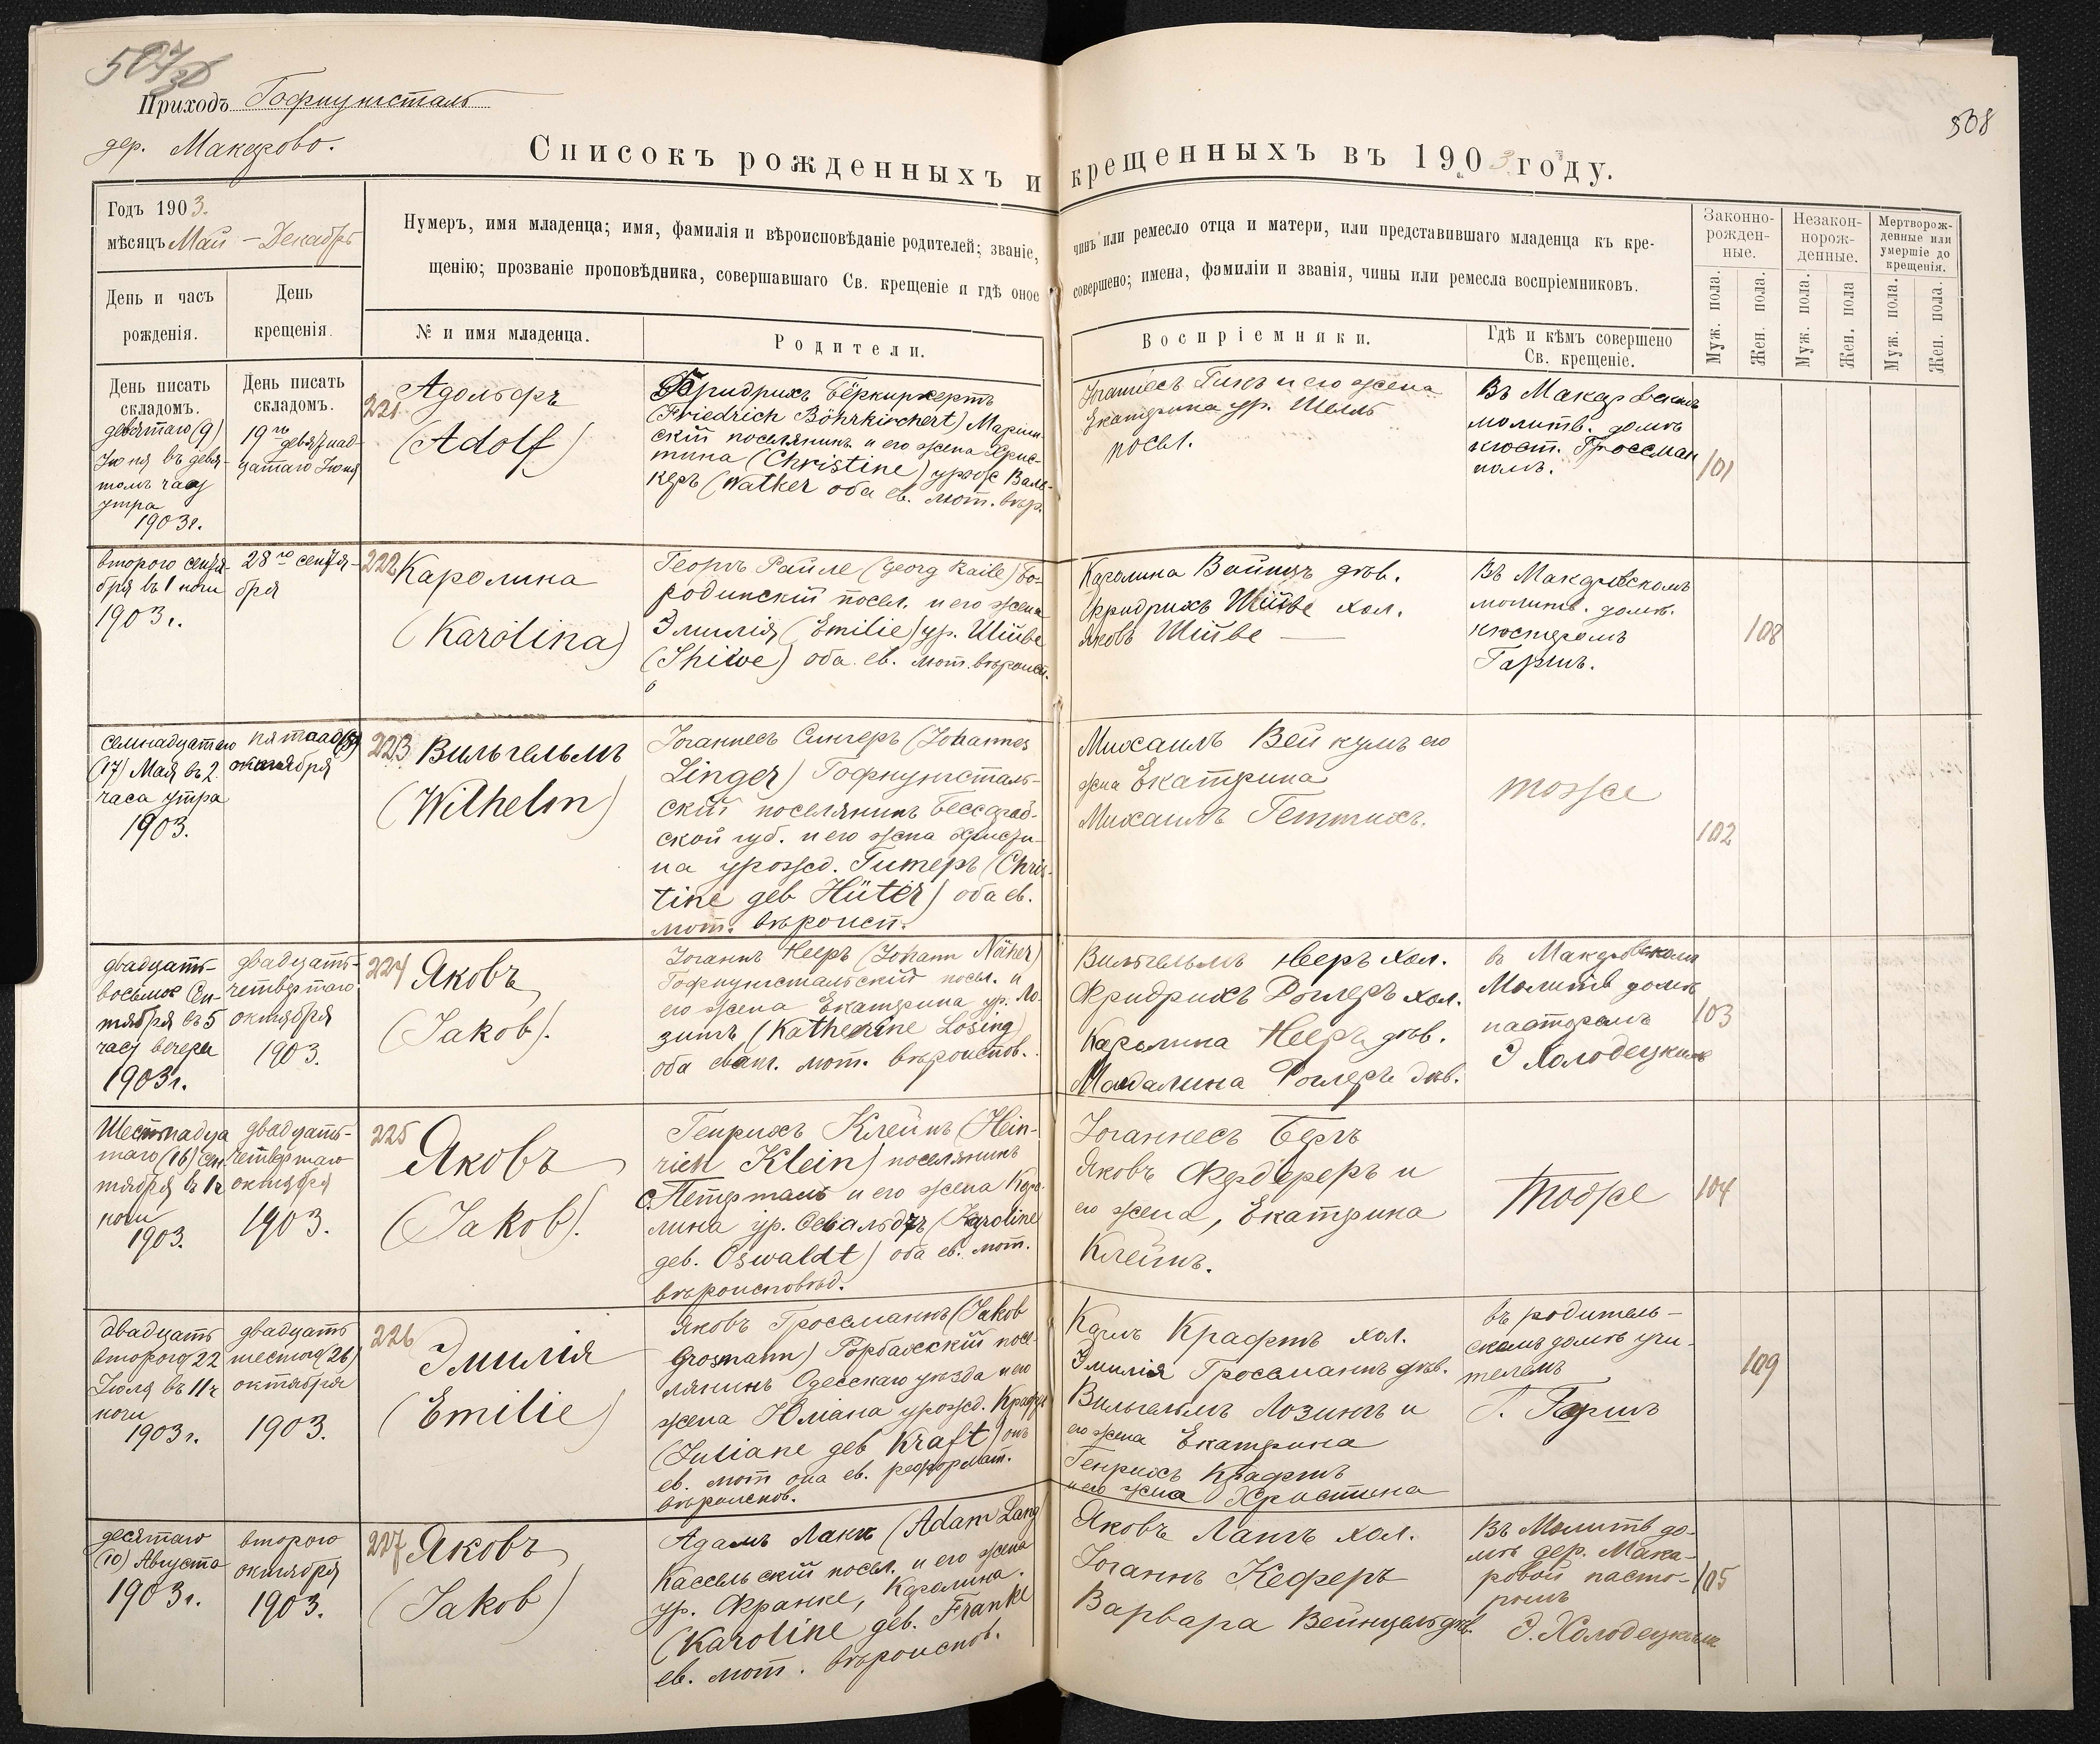 Приходъ Гофнунгсталь
дер. Макарово.
508
Списокъ рожденныхъ и крещенныхъ въ 1903 году.
Годъ 1903.
мѣсяцъ Май - Декабрь
Нумеръ, имя младенца; имя, фамилія и вѣроисповѣданіе родителей; званіе, чинъ или ремесло отца и матери, или представившаго младенца къ кре-
щенію; прозваніе проповѣдника, совершавшаго Св. крещеніе и гдѣ оное совершено; имена, фамиліи и званія, чины или ремесла воспріемниковъ.
Законно-
рожден-
ные.
Незакон-
норож-
денные.
Мертворож-
денные или
умершіе до
крещенія.
День и часъ
рожденія.
День
крещенія.
№ и имя младенца.
Родители.
Воспріемники.
Гдѣ и кѣмъ совершено
Св. крещеніе.
Муж. пола.
Жен. пола.
Муж. пола.
Жен. пола
Муж. пола.
Жен. пола.
День писать
складомъ.
девятаго (9)
Іюня въ девя-
томъ часу
утра
1903г.
День писать
складомъ.
19го девятнад-
цатаго Іюня
221.
Адольфъ
(Adolf)
Фридрихъ Бёркирхертъ
(Friedrich Böhrkirchert) Маріин-
скій поселянинъ и его жена Хрис-
тина (Christine) урож Валь-
керъ (Walker оба ев. лют. вѣр.
Іоганнесъ Гинъ и его жена
Екатерина ур. Шелль
посел.
Въ Макаровскомъ
молитв. домѣ
кюст. Гроссман
номъ.
101
второго сентя-
бря въ 1 ночи
1903 г.
28го сентя-
бря
222 Каролина
(Karolina)
Георгъ Райле (Georg Raile) Бо-
родинскій посел. и его жена
Эмилія (Emilie) ур. Шиве
(Shiwe) оба ев. лют. вѣроисп.
Каролина Войцъ дѣв.
Фридрихъ Шиве хол.
Яковъ Шиве —
Въ Макаровскомъ
молитв. домѣ.
кюстеромъ
Гаршъ.
108
семнадцатаго
(17) Мая въ 2
часа утра
1903.
октября
223 Вильгельмъ
(Wilhelm)
Іоганнесъ Сингеръ (Johannes
Singer) Гофнунгсталь-
скій поселянинъ Бессараб-
ской губ. и его жена Христи-
на урожд. Гитеръ (Chris-
tine geb Hüter) оба ев.
лют. вѣроисп.
Михаилъ Вейкумъ его
жена Екатерина
Михаилъ Геттихъ.
тоже
102
двадцать-
восьмое Сен-
тября въ 5
часу вечера
1903г.
двадцать-
четвертаго
октября
1903.
224 Яковъ
(Jakob).
Іоганъ Нееръ (Johann Näher)
Гофнунгстальскій посел. и
его жена Екатерина ур. Ло-
зингъ (Katherine Losing)
оба еванг. лют. вѣроиспов.
Вильгельмъ Нееръ хол.
Фридрихъ Роглеръ хол.
Каролина Нееръ дѣв.
Магдалина Роглеръ дѣв.
въ Макаровскомъ
Молитв домѣ
пасторомъ
Э Холодецкимъ
103
Шестнадца
таго (16) Сен-
тября въ 1ч
ночи
1903.
двадцать-
четвертаго
октября
1903.
225
Яковъ
(Jakob).
Генрихъ Клейнъ (Hein-
rich Klein) поселянинъ
с. Петерталь и его жена Каро-
лина ур. Освальдтъ (Karoline
geb. Oswaldt) оба ев. лют.
вѣроисповѣд.
Іоганнесъ Бергъ
Яковъ Фердереръ и
его жена, Екатерина
Клейнъ.
Тоже
104
двадцать
второго 22
Іюля въ 11ч
ночи
1903 г.
двадцать
шестого (26)
октября
1903.
226
Эмилія
(Emilie)
Яковъ Гроссманнъ (Jakob
Grosmann) посе-
лянинъ Одесскаго уѣзда и его
жена Юлiана урожд. Крафтъ
(Juliane geb Kraft) онъ
ев. лют она ев. реформат.
вѣроиспов.
Карлъ Крафтъ хол.
Эмилія Гроссманнъ дѣв.
Вильгельмъ Лозингъ и
его жена Екатерина
Генрихъ Крафтъ
и его жена Христина
въ родитель-
скомъ домѣ учи-
телемъ
Г. Гаршъ
109
десятаго
(10) Августа
1903г.
второго
октября
1903.
227 Яковъ
(Jakob)
Адамъ Ланг (Adam Lang
Кассельскій посел. и его жена
ур. Франке, Каролина.
(Karoline geb. Franke
ев. лют. вѣроиспов.
Яковъ Лангъ хол.
Іоганнъ Кеферъ
Варвара Вейнцель дѣв.
Въ Молитв до-
мѣ дер. Мака-
ровой пасто-
ромъ
Э. Холодецкимъ
105